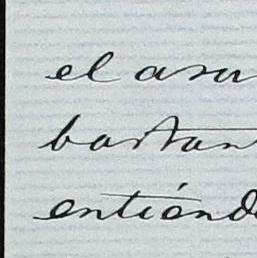 el asu
bastan
entiend